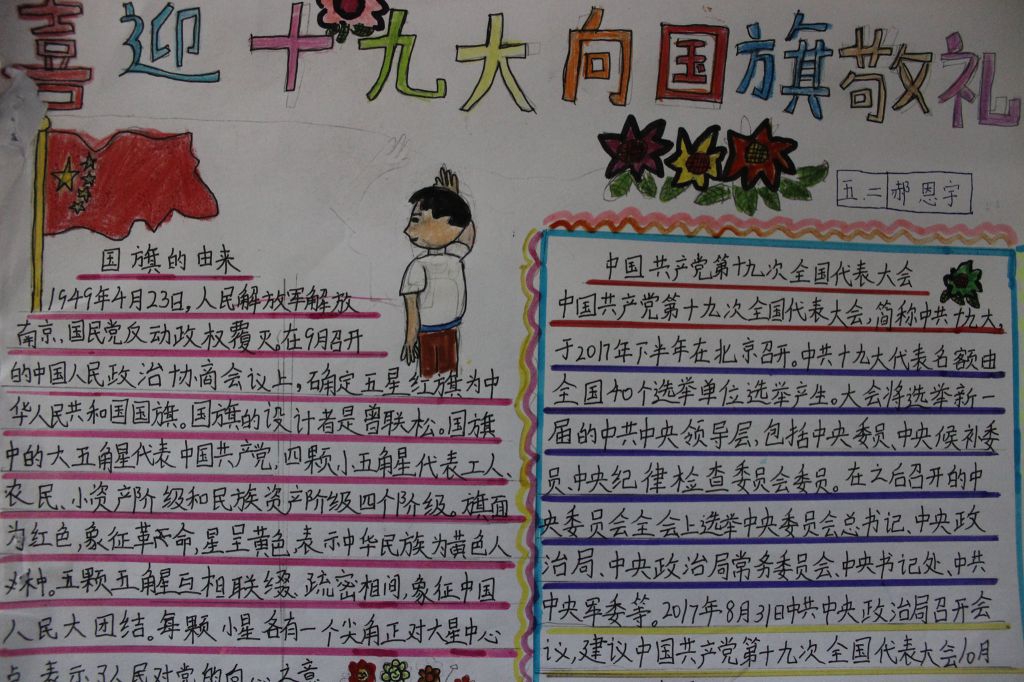 喜迎十九大向国旗敬礼
五.二 郝恩宇
国旗的由来
1949年4月23日,人民解放军解放
南京、国民党反动政权覆灭。在9月召开
的中国人民政治协商会议上,确定五星红旗为中
华人民共和国国旗。国旗的设计者是曾联松。国旗
中的大五角星代表中国共产党,四颗小五角星代表工人、
农民、小资产阶级和民族资产阶级四个阶级。旗面
为红色,象征革命,星呈黄色,表示中华民族为黄色人
种。五颗五角星互相联缀、疏密相间,象征中国
人民大团结。每颗小星各有一个尖角正对大星中心
点,表示了人民对党的向心之意
中国共产党第十九次全国代表大会
中国共产党第十九次全国代表大会,简称中共十九大,
于2017年下半年在北京召开。中共十九大代表名额由
全国40个选举单位选举产生。大会将选举新一
届的中共中央领导层,包括中央委员、中央候补委
员、中央纪律检查委员会委员。在之后召开的中
央委员会全会上选举中央委员会总书记、中央政
治局、中央政治局常务委员会、中央书记处、中共
中央军委等。2017年8月31日中共中央政治局召开会
议,建议中国共产党第十九次全国代表大会10月